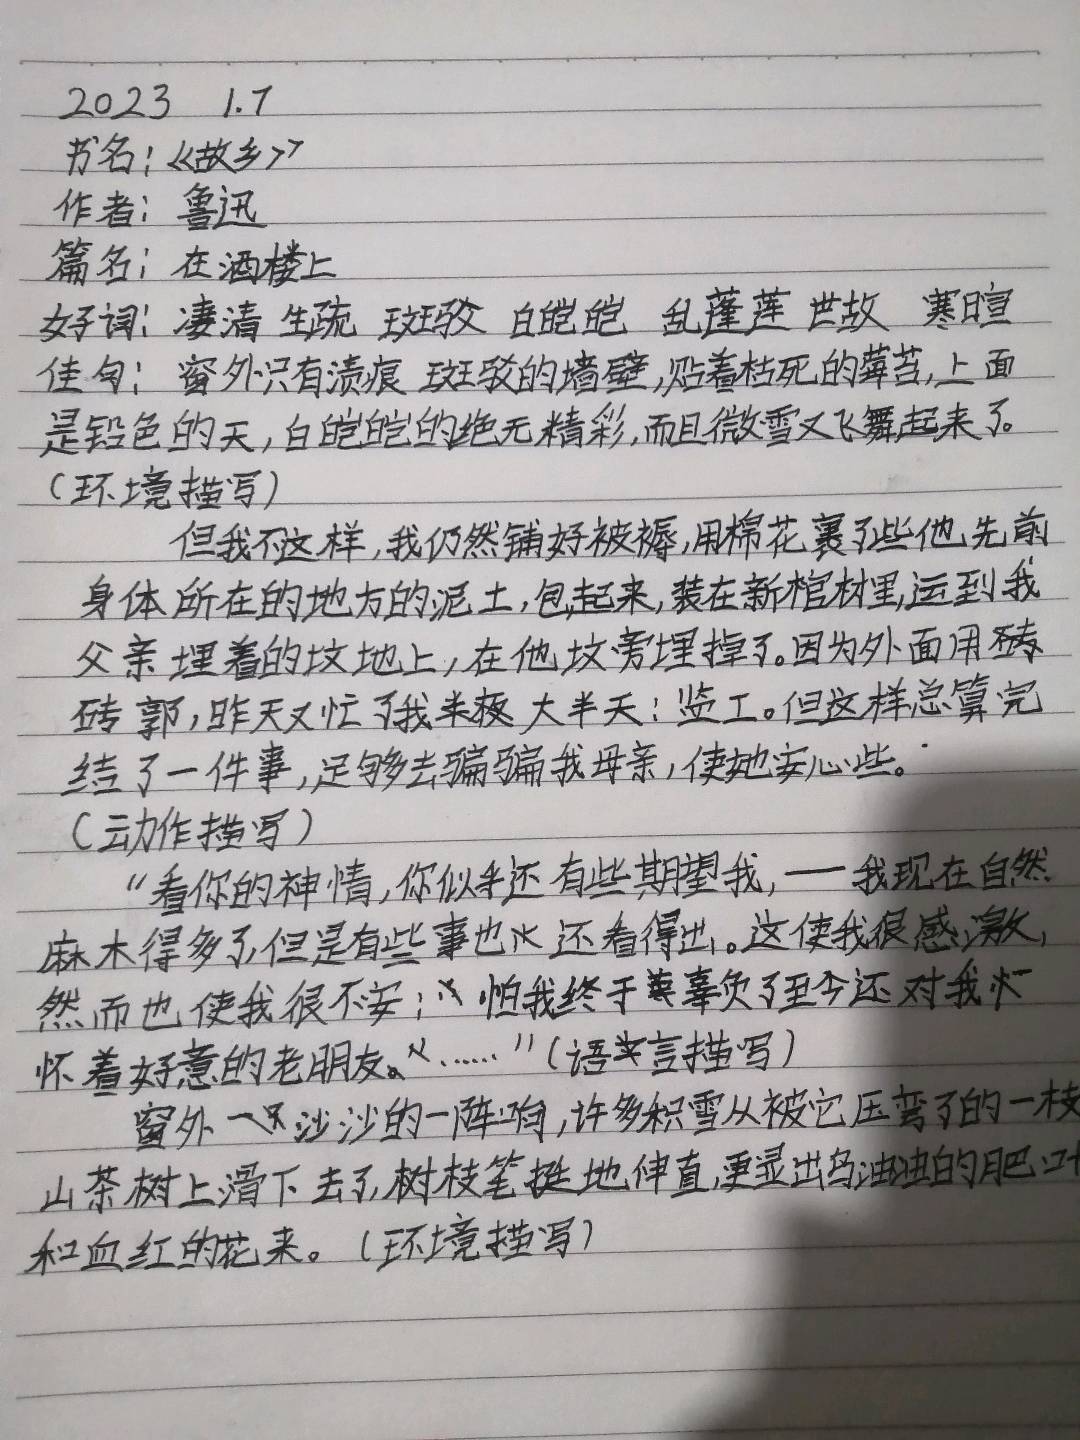 2023 1.7
书名:《故乡》
作者:鲁迅
篇名:在酒楼上
好词:凄清 生疏 斑驳 白皑皑 乱蓬莲 世故 寒暄
佳句:窗外只有渍痕斑驳的墙壁,贴着枯死的莓苔,上面
是铅色的天,白皑皑的绝无精彩,而且微雪又飞舞起来了。
(环境描写)
但我不这样,我仍然铺好被褥,用棉花裹了些他先前
身体所在的地方的泥土,包起来,装在新棺材里,运到我
父亲埋着的坟地上,在他坟旁埋掉了。因为外面用
砖郭,昨天又忙了我 大半天:监工。但这样总算完
结了一件事,足够去骗骗我母亲,使她安心些。
(动作描写)
“看你的神情,你似乎还有些期望我,——我现在自然
麻木得多了,但是有些事也 还看得出。这使我很感激,
然而也使我很不安: 怕我终于 辜负了至今还对我
怀着好意的老朋友。……”(语言描写)
窗外 沙沙的一阵响,许多积雪从被它压弯了的一枝
山茶树上滑下去了,树枝笔挺地伸直,更显出乌油油的肥叶
和血红的花来。(环境描写)